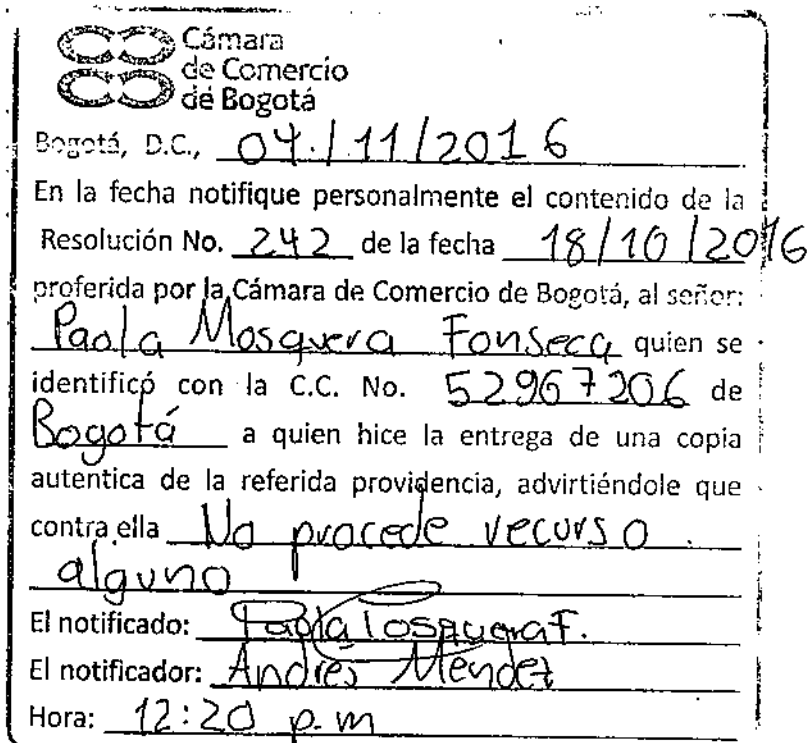 Cámara
de Comercio
de Bogotá
Bogotá, D.C., 04/11/2016
En la fecha notifique personalmente el contenido de la
Resolución No. 242 de la fecha 18/10/2016
proferida por la Cámara de Comercio de Bogotá, al señor:
Paola Mosquera Fonseca quien se
identificó con la C.C. No. 52967206 de
Bogotá a quien hice la entrega de una copia
autentica de la referida providencia, advirtiéndole que
contra ella No procede recurso
alguno
El notificado: Paola Mosquera F.
El notificador: Andres Mendez
Hora: 12:20 p.m